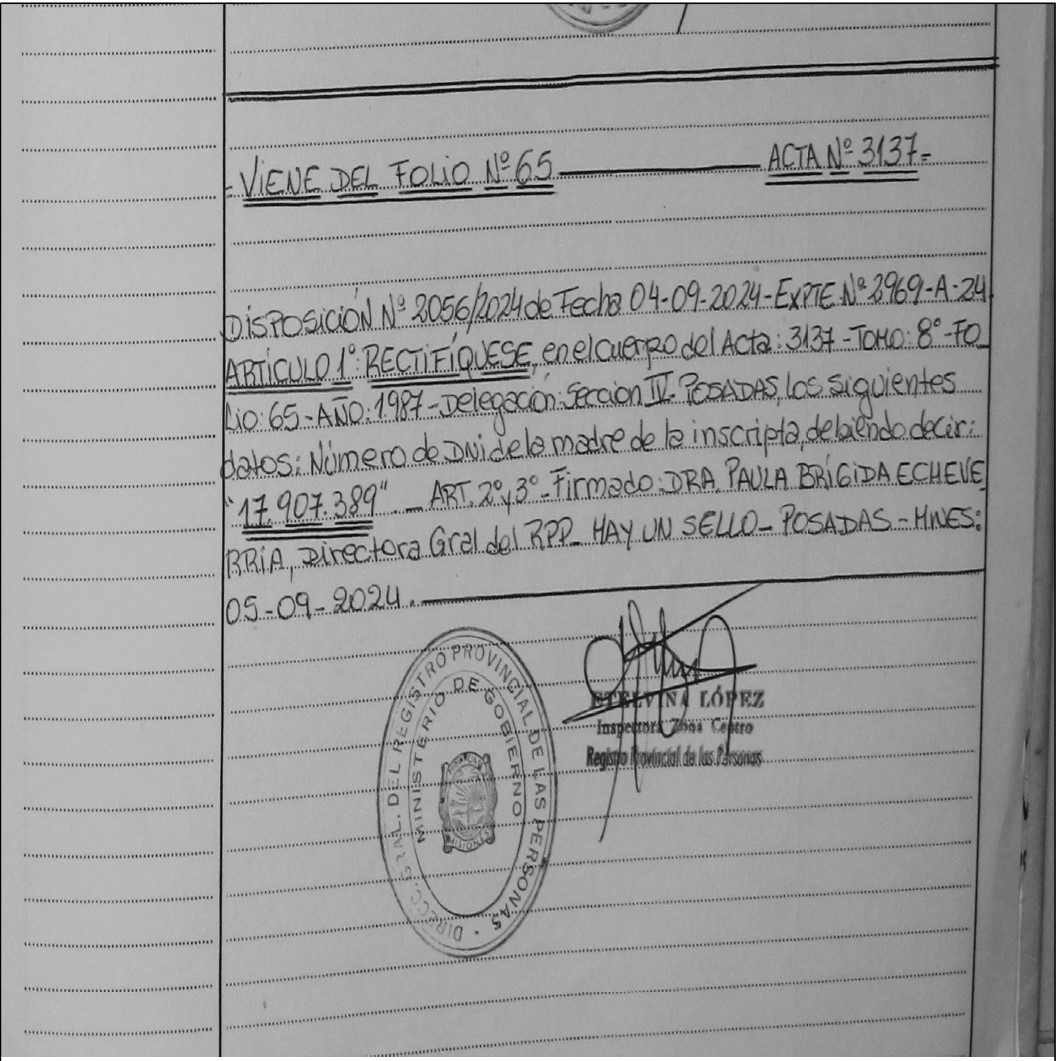 - VIENE DEL FOLIO Nº 65 ———— ACTA Nº 3137-
DISPOSICIÓN Nº 2056/2024 de Fecha 04-09-2024 - EXPTE Nº 2969-A-24
ARTÍCULO 1º: RECTIFÍQUESE, en el cuerpo del Acta: 3137 - TOMO: 8º - FO_
LIO: 65 - AÑO: 1987 - Delegación: Seccion IV - POSADAS, los siguientes
datos: Número de DNI de la madre de la inscripta, debiendo decir:
"17.907.389" _ ART. 2º y 3º - Firmado: DRA. PAULA BRÍGIDA ECHEVE_
RRIA, Directora Gral del RPP_ HAY UN SELLO_ POSADAS - MNES:
05-09-2024. ————
DIRECC. GRAL. DEL REGISTRO PROVINCIAL DE LAS PERSONAS
MINISTERIO DE GOBIERNO
MISIONES
ETELVINA LÓPEZ
Inspectora Zona Centro
Registro Provincial de las Personas